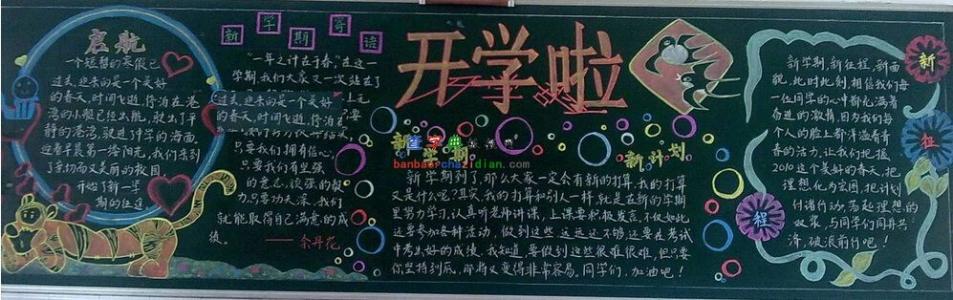 启航
一个短暂的寒假已
过去,迎来的是一个美好
的春天,时间飞逝,停泊在港
湾的小艇已经出航,驶出了平
静的港湾,驶进冲学的海面,
迎着早晨第一缕阳光,我们走到
了亲切而又美丽的校园,
开始了新一年
期的征途
新学期寄语
“一年之计在于春”,在这一
学期我们大家又一次站在了
过去,迎来的是一个美好
的春天,时间飞逝,停泊
只要我们拥有信心,
只要我们有坚强
的意志,顽强的毅
力,只要功夫深,我们
就能取得自己满意的成
绩。
——佘丹花
开学啦
新学期
新计划
banbao.chazidian.com
新学期到了,那么大家一定会有新的打算,我的打算
又是什么呢?其实,我的打算和别人一样,就是在新的学期
里努力学习,认真听老师讲课,上课要积极发言,不仅如此
还要参加各种活动,做到这些,这远远不够还要在考试
中考出好的成绩,我知道,要做到这些很难很难,但只要
你坚持到底,那将又变得非常容易,同学们,加油吧!
新征程
新学期,新征程,新面
貌,此时此刻,相信我们每
一位同学的心中都充满着
奋进的激情,因为我们每
个人的脸上都洋溢着青
春的活力,让我们把握
2010这个美好的春天,把
理想化为宏图,把计划
付诸行动,荡起理想的
双桨,与同学们同舟共
济,破浪前行吧!